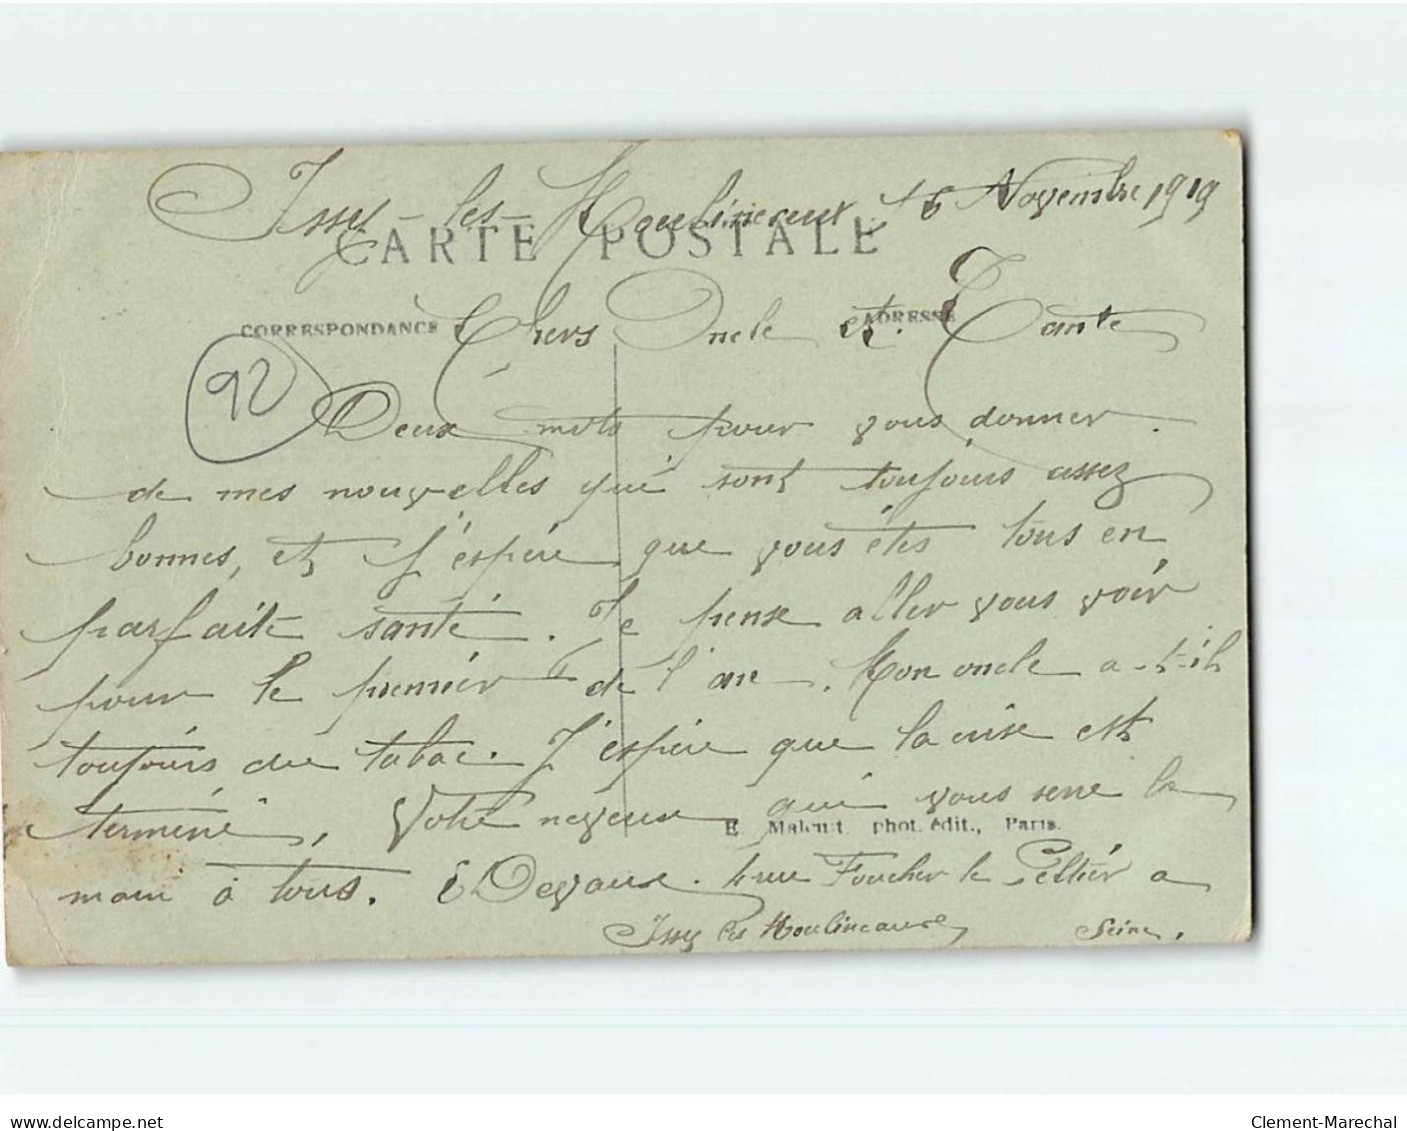 Issy-les-Moulineaux, 16 Novembre 1919
CARTE POSTALE
CORRESPONDANCE
ADRESSE
Chers Oncle et Tante
92
Deux mots pour vous donner
de mes nouvelles qui sont toujours assez
bonnes, et j'espère que vous étes tous en
parfaite santé. Je pense aller vous voir
pour le premier de l'an. Mon oncle a-t-il
toujours du tabac. J'espère que la crise est
terminé, Votre neveux qui vous serre la
E. Malcuit, phot. édit., Paris.
main à tous. E Devaux. rue Foucher le Peltier a
Issy les Moulineaux Seine.
delcampe.net
Clement-Marechal